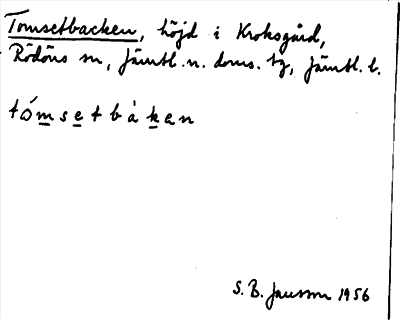 Tomsetbacken, höjd i Kroksgård,
Rödöns sn, Jämtl. n. doms. tg, Jämtl. l.
tómsetbàken
S. B. Jansson 1956